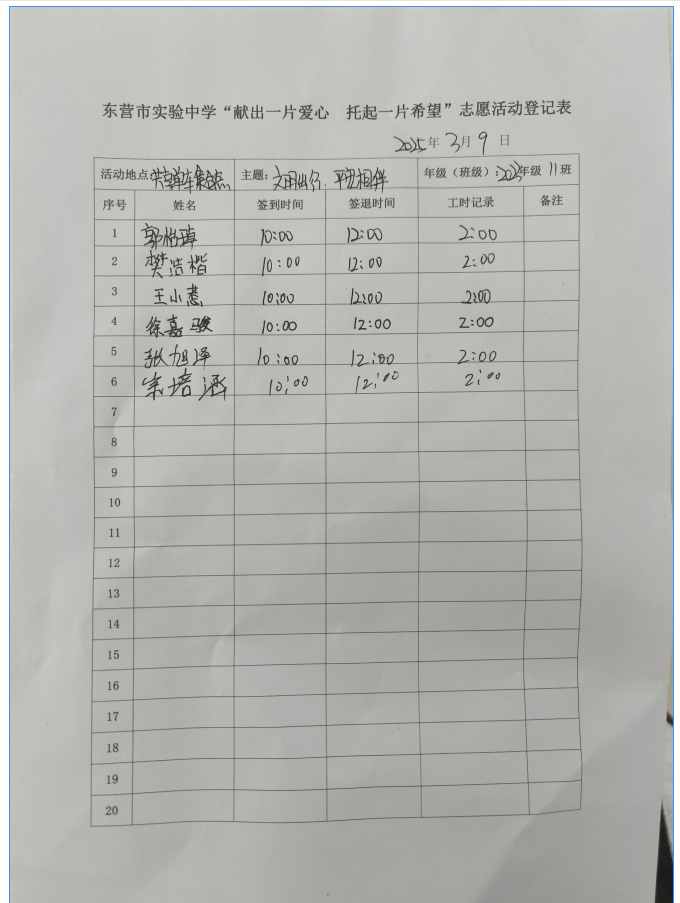 东营市实验中学“献出一片爱心 托起一片希望”志愿活动登记表
2025年 3月 9 日
活动地点:共享单车集合点 主题:文明出行,平安相伴 年级(班级):2023年级 11班
序号 姓名 签到时间 签退时间 工时记录 备注
1 郭怡琸 10:00 12:00 2:00
2 樊浩楷 10:00 12:00 2:00
3 王小熹 10:00 12:00 2:00
4 徐嘉骏 10:00 12:00 2:00
5 张旭泽 10:00 12:00 2:00
6 宗培涵 10:00 12:00 2:00
7
8
9
10
11
12
13
14
15
16
17
18
19
20